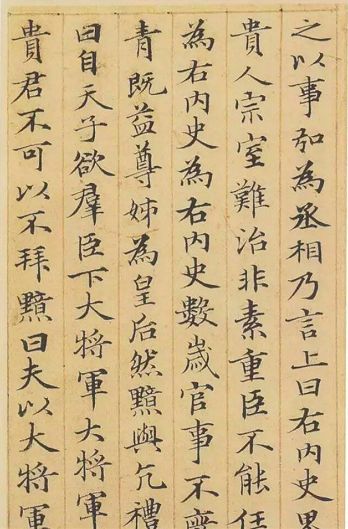 之以事弘為丞相乃言上曰右內史界
貴人宗室難治非素重臣不能任
為右內史為右內史數歲官事不廢
青既益尊姊為皇后然黯與亢禮
曰自天子欲羣臣下大將軍大將軍
貴君不可以不拜黯曰夫以大將軍